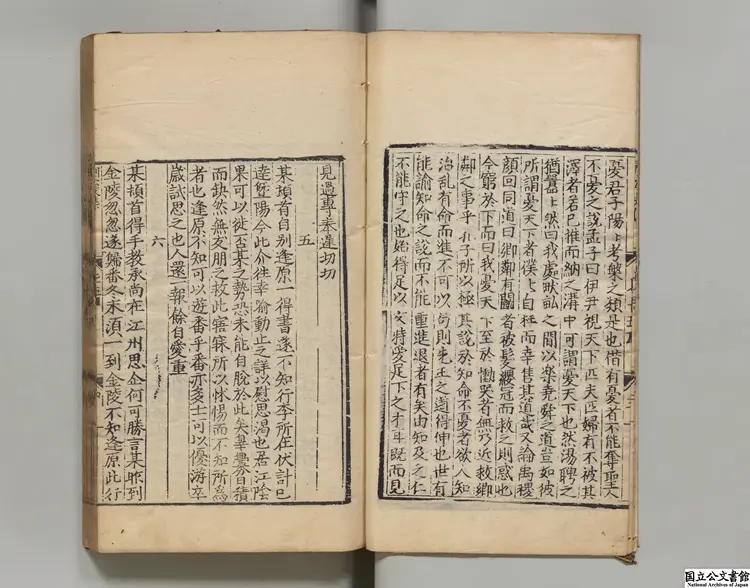 憂君子陽陽考槃之類是也惜有憂者不能奪聖人
不憂之說孟子曰伊尹視天下匹夫匹婦有不被其
澤者若已推而納之溝中可謂憂天下也然湯聘之
猶囂囂然曰我處畎畝之間以樂堯舜之道豈如彼
所謂憂天下者僕僕自枉而幸售其道哉又論禹稷
顏回同道曰鄉鄰有鬭者被髮纓冠而救之則惑也
今窮於下而曰我憂天下至於慟哭者無乃近救鄉
鄰之事乎孔子所以極其說於知命不憂者欲人知
治亂有命而進不可以苟則先王之道得伸也世有
能諭知命之說而不能重進退者有矣由知及之仁
不能守之也始得足下文特愛足下之才耳既而見
見過專奉達切切
五
某頓首自別逢原一得書遂不知行李所在伏計已
達暨陽今此介往幸諭動止之詳以慰思渴也居江陰
果可以徙否某之勢恐未能自脫於此矣罪釁日積
而缺然無友朋之救此寤寐所以怵惕而不知所為
者也逢原不知可以遊番乎番亦多士可以優游卒
歲試思之也人還一報餘自愛重
六
某頓首得手教承尚在江州思企何可勝言某昨到
金陵忽忽遂歸番冬末須一到金陵不知逢原此行
国立公文書館
National Archives of Japan